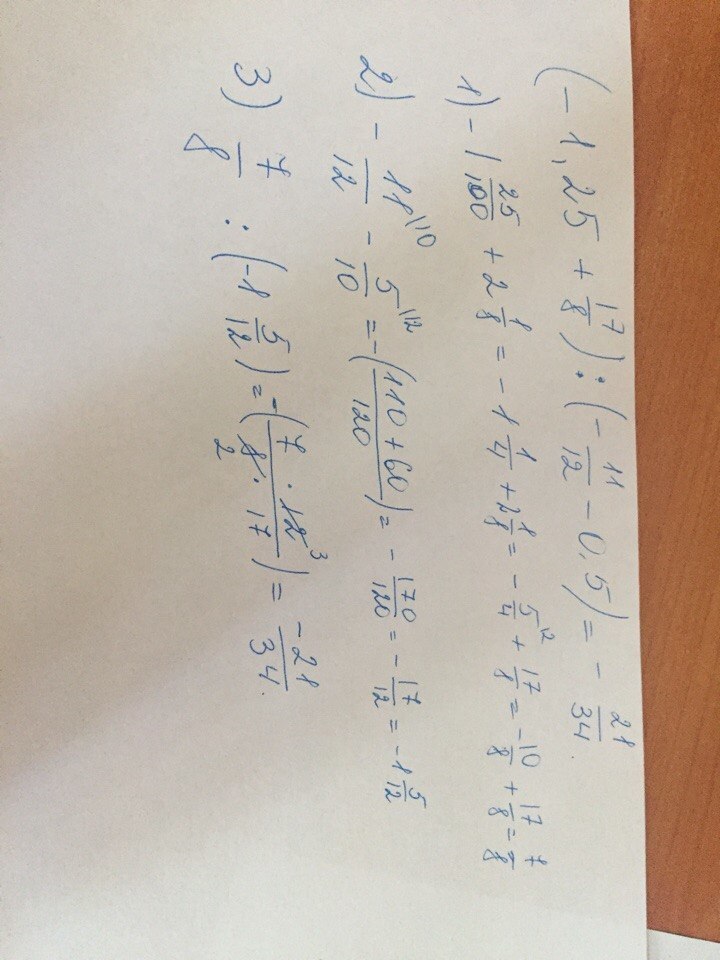 (-1,25 + 17/8) : (-11/12 - 0,5) = -21/34.
1) -1 25/100 + 2 1/8 = -1 1/4 + 2 1/8 = -5/4 ^12 + 17/8 = -10/8 + 17/8 = 7/8
2) -11/12 ^110 - 5/10 ^112 = -(110+60/120) = -170/120 = -17/12 = -1 5/12
3) 7/8 : (-1 5/12) = -(7 · 12 3/8 2 · 17) = -21/34.